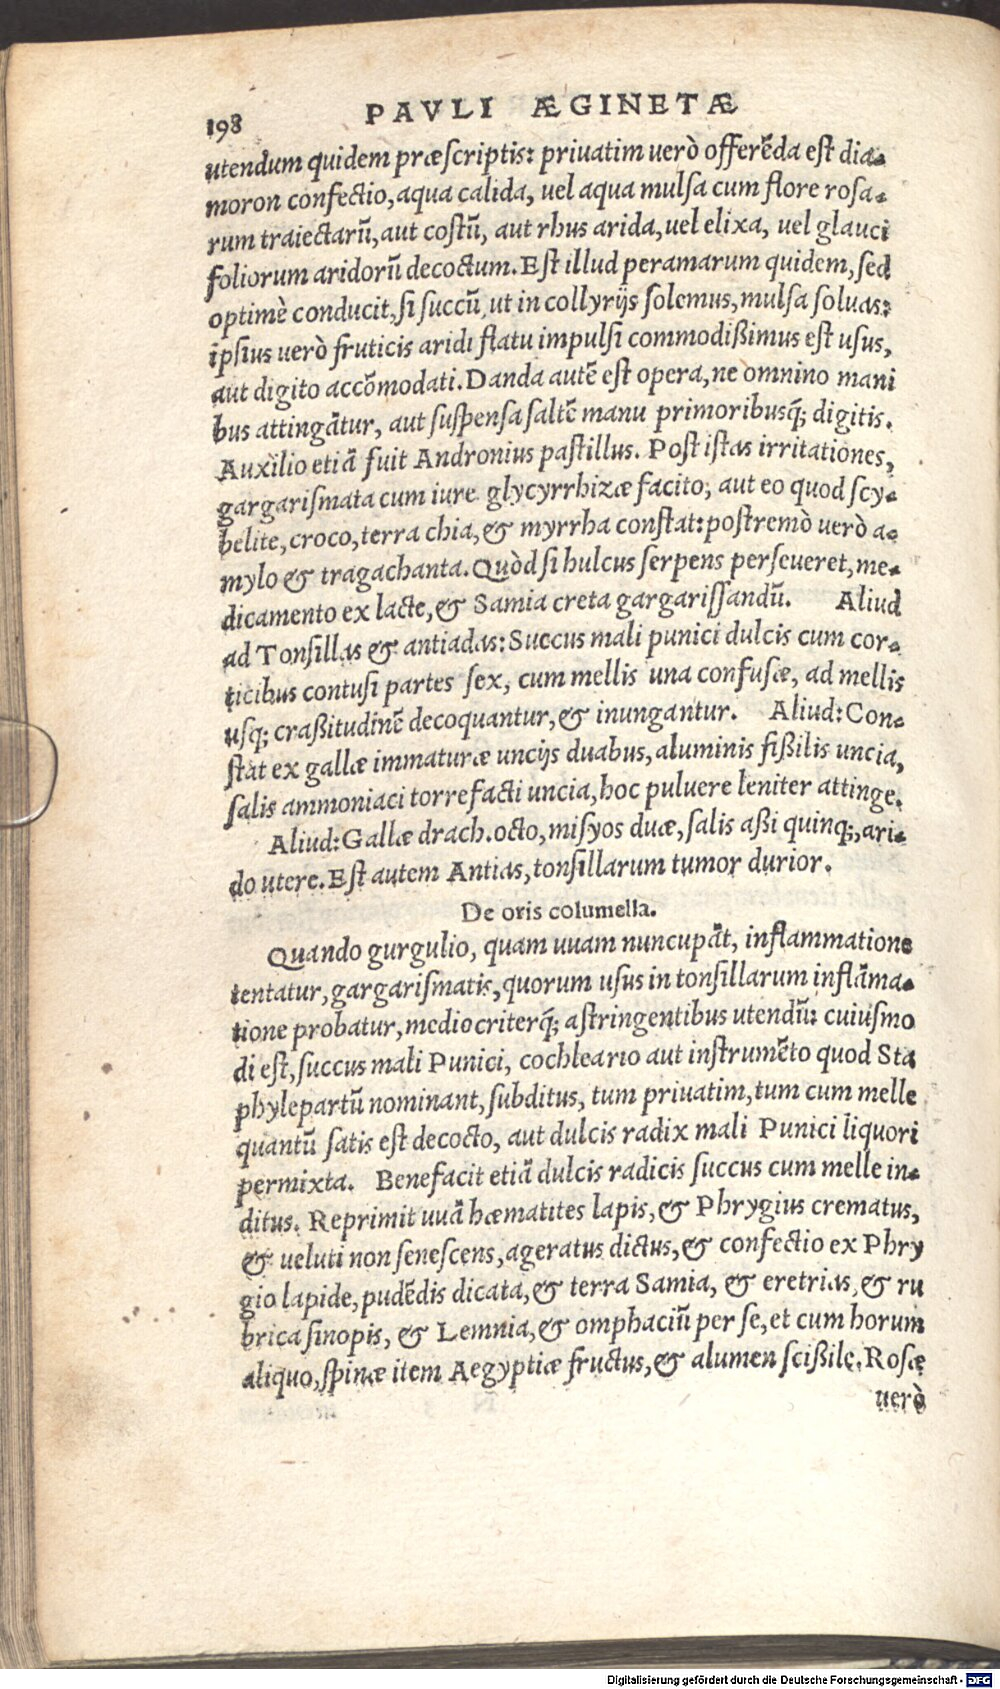 198 PAVLI ÆGINETÆ
utendum quidem præscriptis: priuatim uerò offerẽda est dia-
moron confectio, aqua calida, uel aqua mulsa cum flore rosa-
rum traiectarũ, aut costũ, aut rhus arida, uel elixa, uel glauci
foliorum aridorũ decoctum. Est illud peramarum quidem, sed
optimè conducit, si succũ, ut in collyrijs solemus, mulsa soluas:
ipsius uerò fruticis aridi flatu impulsi commodißimus est usus,
aut digito accõmodati. Danda autẽ est opera, ne omnino mani
bus attingãtur, aut suspensa saltẽ manu primoribusq́; digitis.
Auxilio etiã fuit Andronius pastillus. Post istas irritationes,
gargarismata cum iure glycyrrhizæ facito, aut eo quod scy-
belite, croco, terra chia, & myrrha constat: postremò uerò a-
mylo & tragachanta. Quòd si hulcus serpens perseueret, me-
dicamento ex lacte, & Samia creta gargarissandũ. Aliud
ad Tonsillas & antiadas: Succus mali punici dulcis cum cor-
ticibus contusi partes sex, cum mellis una confusæ, ad mellis
usq; craßitudinẽ decoquantur, & inungantur. Aliud: Con-
stat ex gallæ immaturæ uncijs duabus, aluminis fißilis uncia,
salis ammoniaci torrefacti uncia, hoc puluere leniter attinge.
Aliud: Gallæ drach. octo, misyos duæ, salis aßi quinq;, ari-
do utere. Est autem Antias, tonsillarum tumor durior.
De oris columella.
Quando gurgulio, quam uuam nuncupãt, inflammatione
tentatur, gargarismatis, quorum usus in tonsillarum inflãma-
tione probatur, mediocriterq́; astringentibus utendũ: cuiusmo
di est, succus mali Punici, cochleario aut instrumẽto quod Sta
phylepartũ nominant, subditus, tum priuatim, tum cum melle
quantũ satis est decocto, aut dulcis radix mali Punici liquori
permixta. Benefacit etiã dulcis radicis succus cum melle in-
ditus. Reprimit uuã hæmatites lapis, & Phrygius crematus,
& ueluti non senescens, ageratus dictus, & confectio ex Phry
gio lapide, pudẽdis dicata, & terra Samia, & eretrias, & ru
brica sinopis, & Lemnia, & omphaciũ per se, et cum horum
aliquo, spinæ item Aegyptiæ fructus, & alumen scißile. Rosæ
uerò
Digitalisierung gefördert durch die Deutsche Forschungsgemeinschaft - DFG